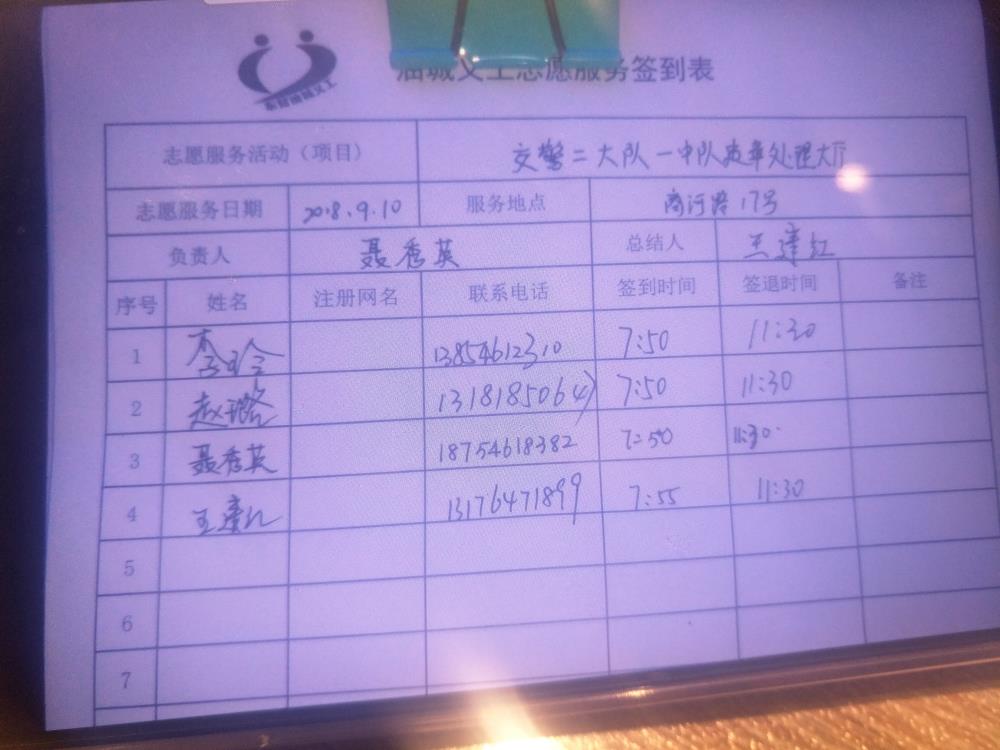 油城义工志愿服务签到表
东营油城义工
志愿服务活动（项目） 交警二大队一中队违章处理大厅
志愿服务日期 2018.9.10 服务地点 商河路17号
负责人 聂秀英 总结人 王建红
序号 姓名 注册网名 联系电话 签到时间 签退时间 备注
1 李玲 13854612310 7:50 11:30
2 赵璐 13181850647 7:50 11:30
3 聂秀英 18754618382 7:50 11:30
4 王建红 13176471899 7:55 11:30
5
6
7